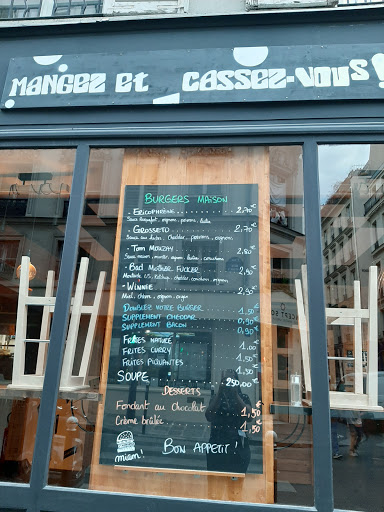 MANGEZ ET CASSEZ-VOUS !
BURGERS MAISON
- ERICOPHRÈNE 2,70€
- GROSSETO 2,70€
- TOM MOUZHY 2,80
- BAD MOTHER FUCKER 2,90
- WINNIE 2,95
Miel, chèvre, oignons
DOUBLEZ VOTRE BURGER 1,50
SUPPLÉMENT CHEDDAR 0,90
SUPPLÉMENT BACON 0,90
FRITES NATURE 1,00
FRITES CURRY 1,50
FRITES PIQUANTES 1,50
SOUPE 250,00€
DESSERTS
Fondant au chocolat 1,50€
Crème brûlée 1,50€
miam!
BON APPETIT !